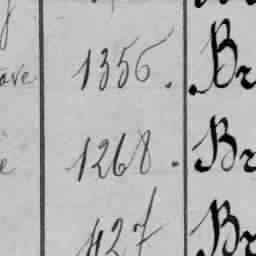 ave 1356. Br
e 1268. Br
427 Br